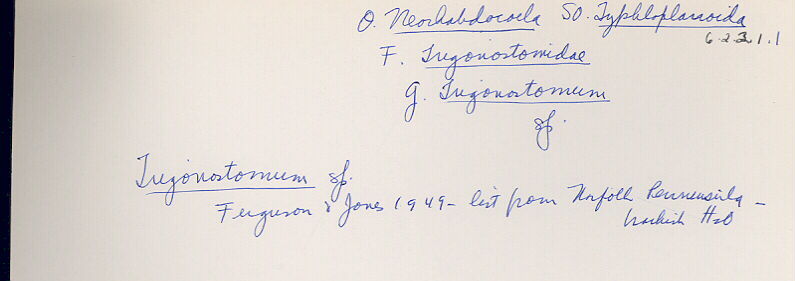 O. Neorhabdocoela SO. Typhloplanoida
6.2.3.1.1
F. Trigonostomidae
G. Trigonostomum
sp.
Trigonostomum sp.
Ferguson & Jones 1949 - list from Norfolk Pennensirla -
brackish H2O